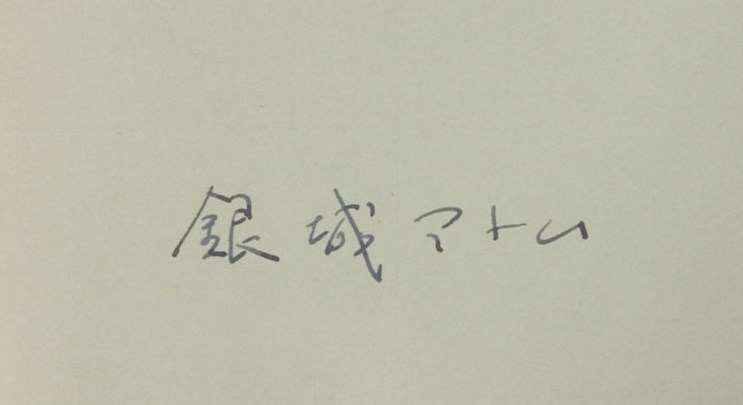 銀城アトム